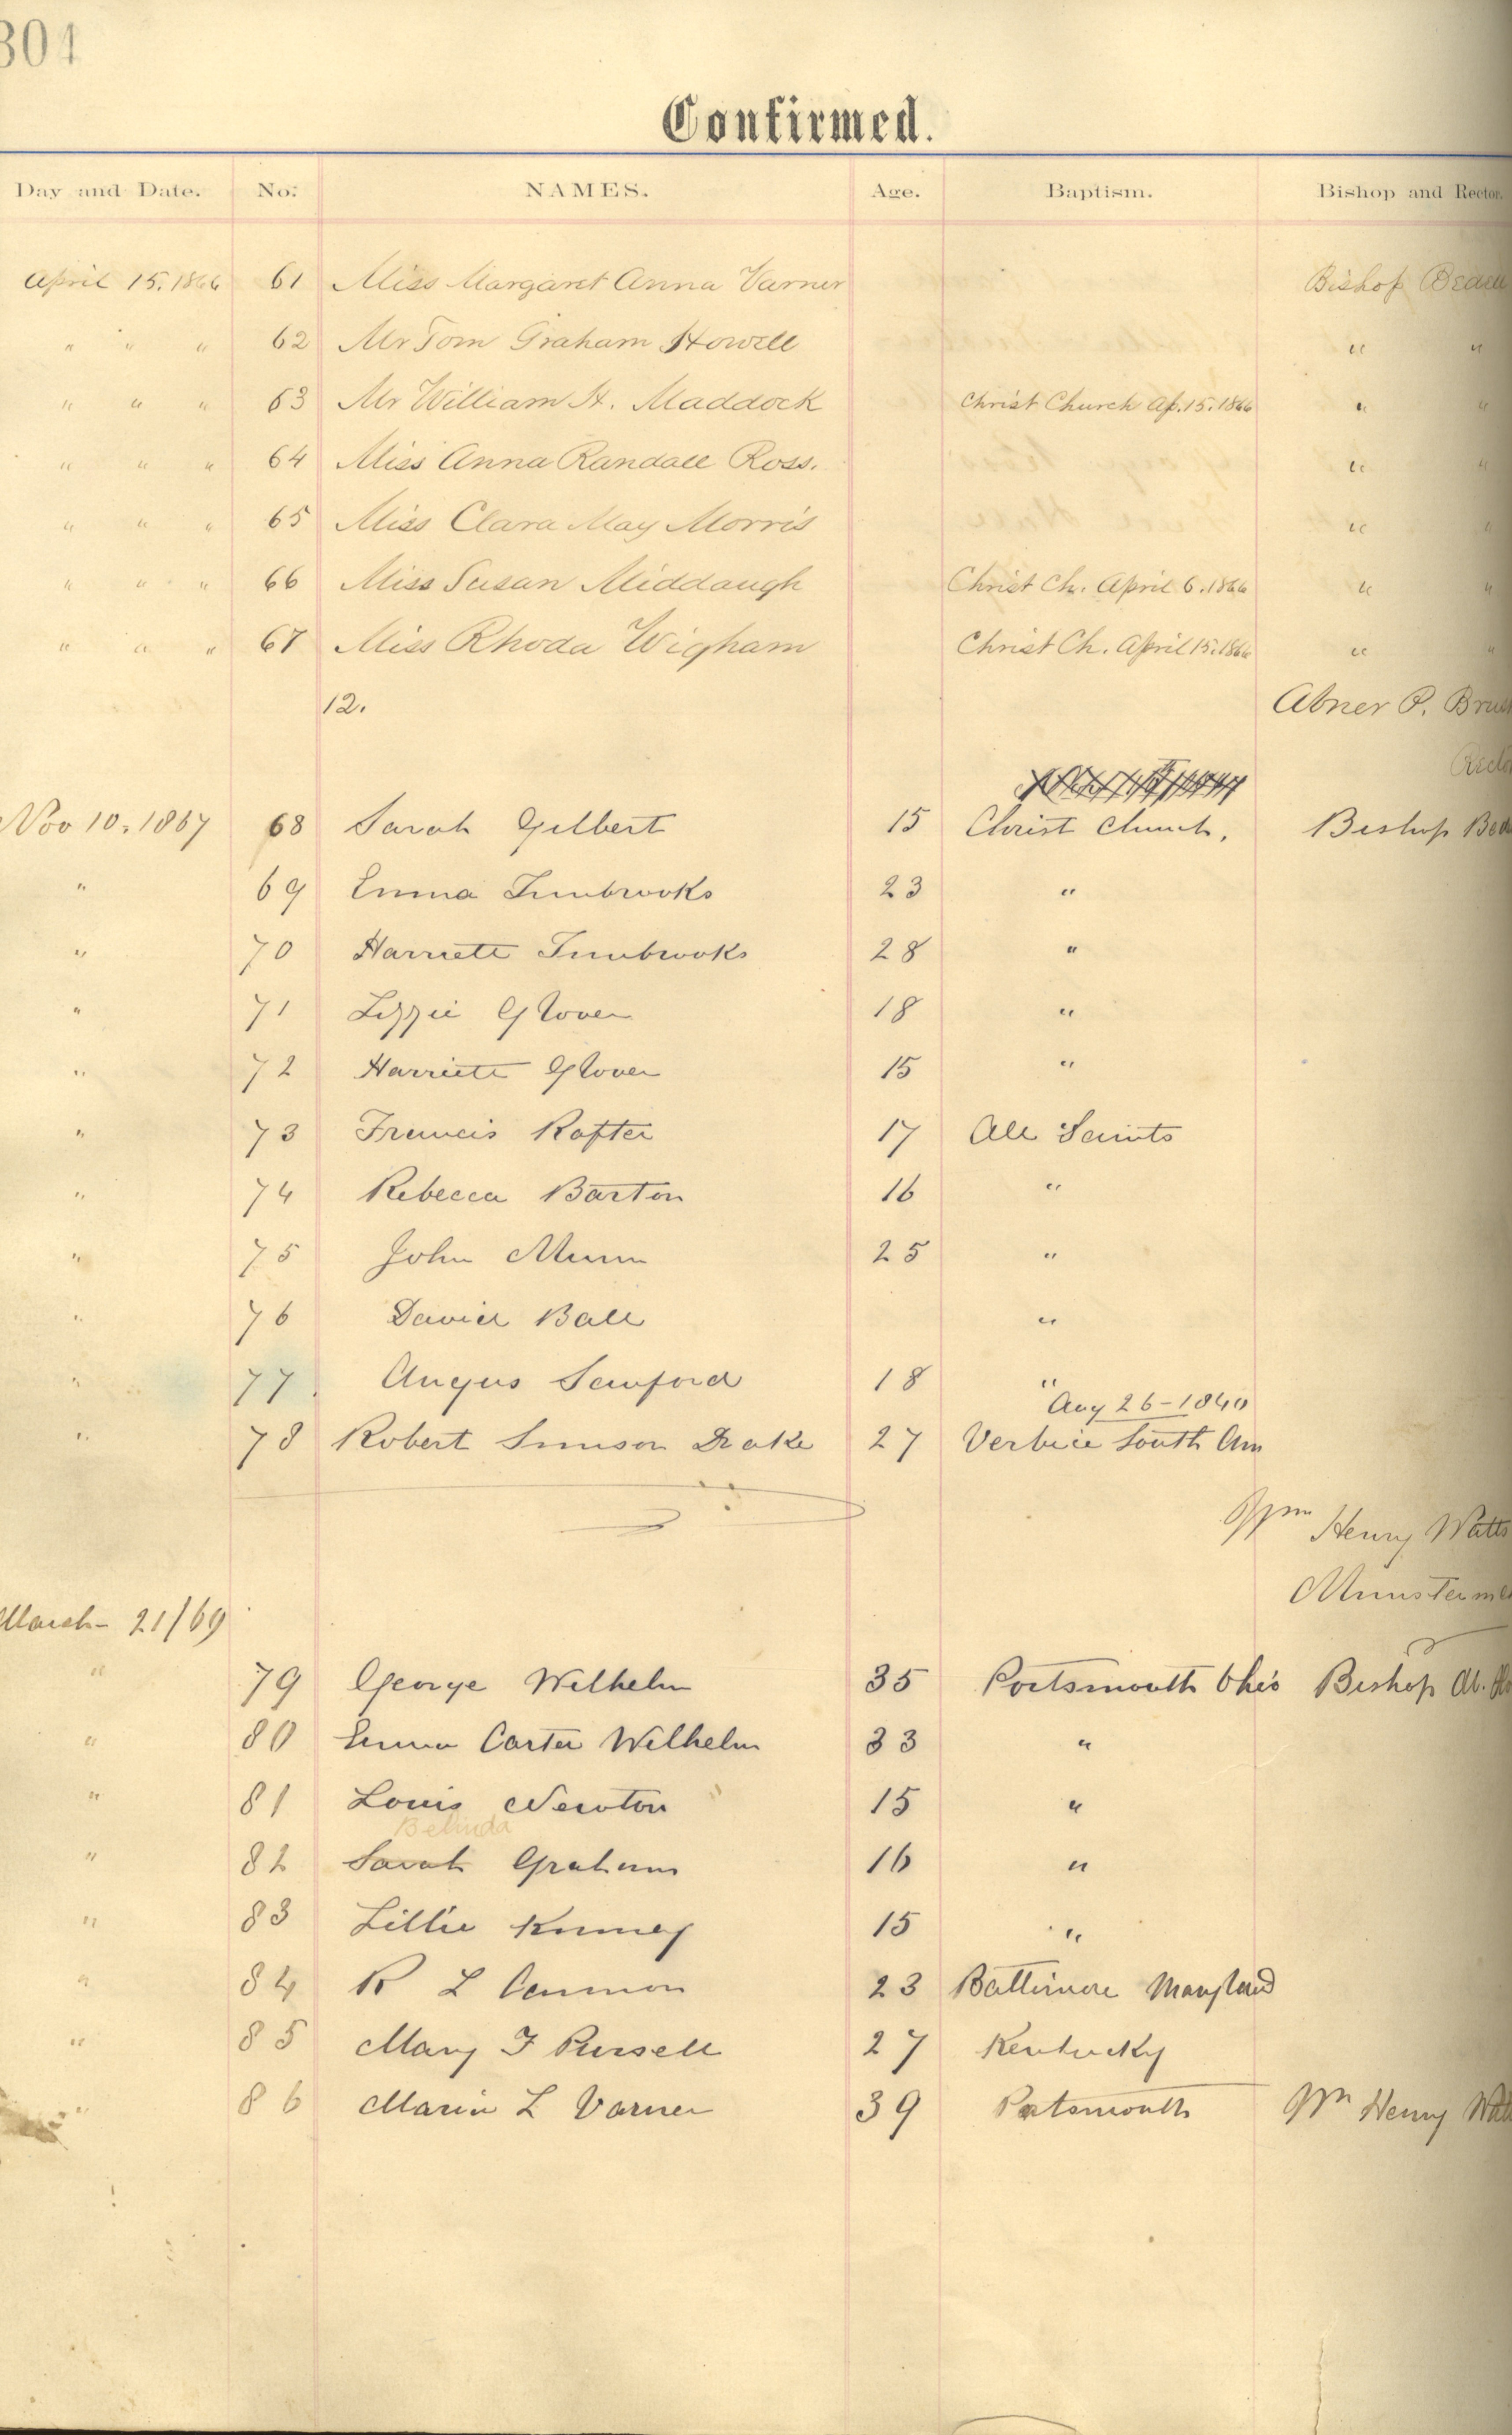 304
Confirmed.
Day and Date. No. NAMES. Age. Baptism. Bishop and Rector.
April 15. 1866 61 Miss Margaret Anna Varner Bishop
" " " 62 Mr Tom Graham Howell " "
" " " 63 Mr William H. Maddock Christ Church Ap. 15. 1866 " "
" " " 64 Miss Anna Randall Ross. " "
" " " 65 Miss Clara May Morris " "
" " " 66 Miss Susan Middaugh Christ Ch. April 6. 1866 " "
" " " 67 Miss Rhoda Wigham Christ Ch. April 15. 1866 " "
12. Abner P.
Nov 10. 1867 68 Sarah Gilbert 15 Christ Church. Bishop
" 69 Emma 23 "
" 70 Harriett 28 "
" 71 Lizzie Glover 18 "
" 72 Harriett Glover 15 "
" 73 Francis Rafter 17 All Saints
" 74 Rebecca Barton 16 "
" 75 John Munn 25 "
" 76 David Ball "
" 77. Angus Sanford 18 "
Aug 26-1840
" 78 Robert Simson Drake 27 Verbice South Am
Henry Watts
March 21/69
" 79 George Wilhelm 35 Portsmouth Ohio Bishop
" 80 Emma Carter Wilhelm 33 "
" 81 Louis Newton 15 "
Belinda
" 82 Sarah Graham 16 "
" 83 Lillie Kinney 15 "
" 84 R L Cannon 23 Baltimore Maryland
" 85 Mary F Russell 27 Kentucky
" 86 Maria L Varner 39 Portsmouth Wm Henry